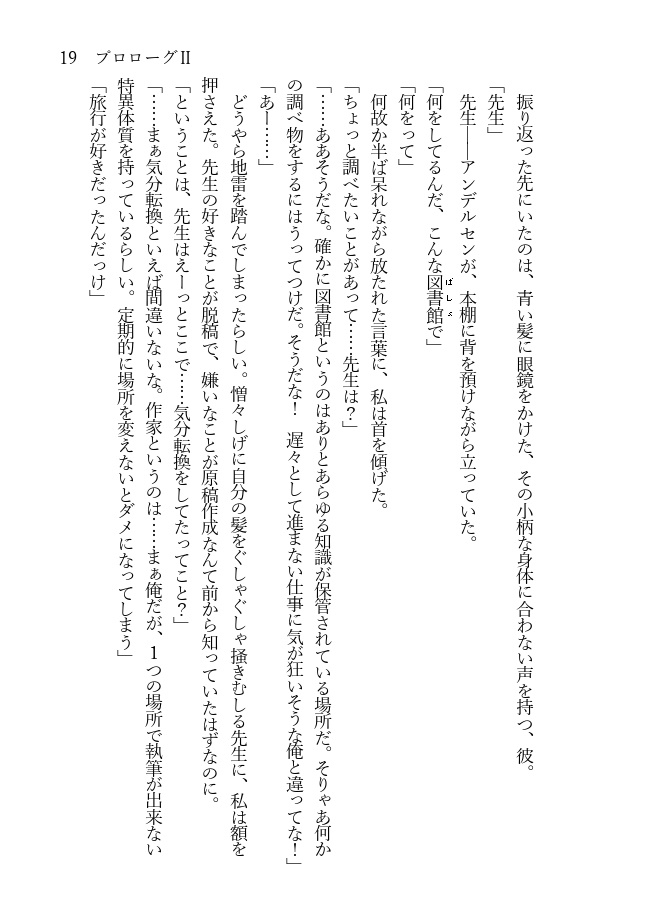 19　プロローグⅡ
　振り返った先にいたのは、青い髪に眼鏡をかけた、その小柄な身体に合わない声を持つ、彼。
「先生」
　先生――アンデルセンが、本棚に背を預けながら立っていた。
「何をしてるんだ、こんな図書館（ばしょ）で」
「何をって」
　何故か半ば呆れながら放たれた言葉に、私は首を傾げた。
「ちょっと調べたいことがあって……先生は？」
「……ああそうだな。確かに図書館というのはありとあらゆる知識が保管されている場所だ。そりゃあ何か
の調べ物をするにはうってつけだ。そうだな！　遅々として進まない仕事に気が狂いそうな俺と違ってな！」
「あー……」
　どうやら地雷を踏んでしまったらしい。憎々しげに自分の髪をぐしゃぐしゃ掻きむしる先生に、私は額を
押さえた。先生の好きなことが脱稿で、嫌いなことが原稿作成なんて前から知っていたはずなのに。
「ということは、先生はえーっとここで……気分転換をしてたってこと？」
「……まぁ気分転換といえば間違いないな。作家というのは……まぁ俺だが、１つの場所で執筆が出来ない
特異体質を持っているらしい。定期的に場所を変えないとダメになってしまう」
「旅行が好きだったんだっけ」